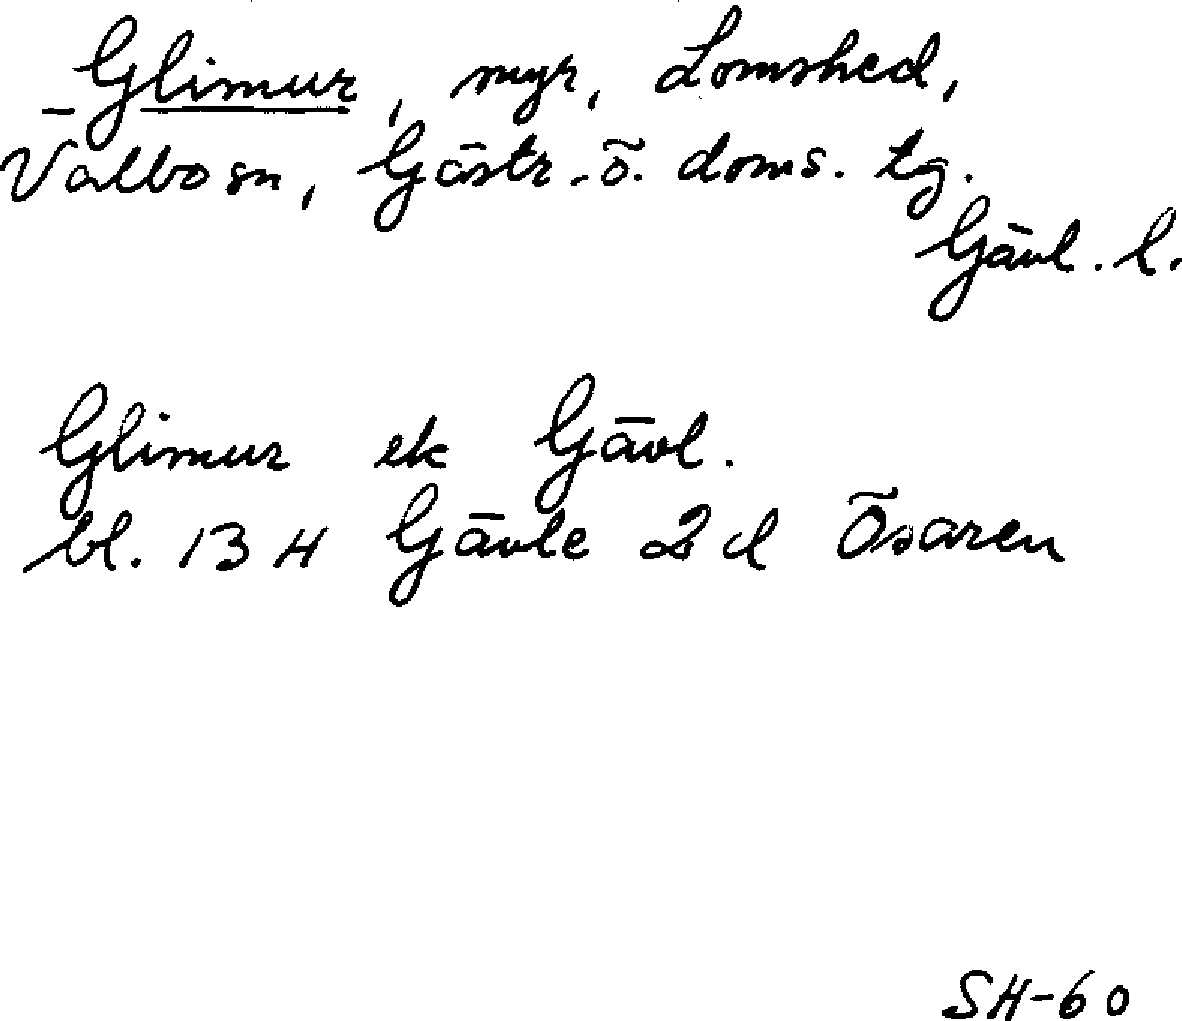 Glimur, myr, Lomshed,
Valbo sn, Gästr.ö. doms. tg.
Gävl. l.
Glimur ek Gävl.
bl. 13 H Gävle 2 d Ösaren
SH-60